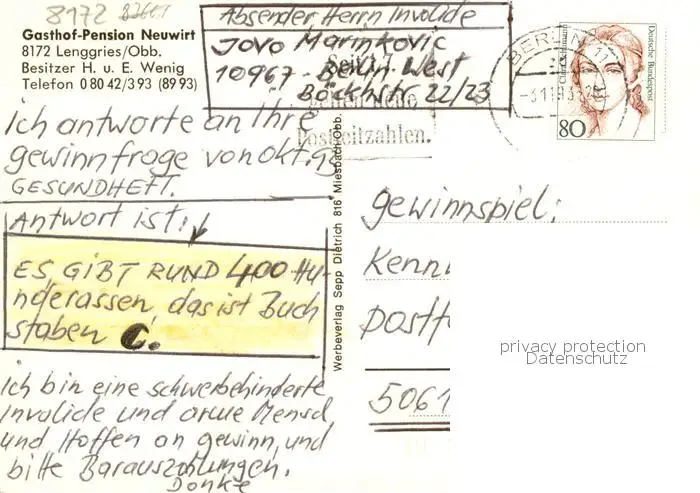 8172
Gasthof-Pension Neuwirt
8172 Lenggries/Obb.
Besitzer H. u. E. Wenig
Telefon 0 80 42/3 93 (89 93)
Absender Herrn Involide
Jovo Marinkovic
10967 - Berlin. West
Böckhstr 22/23
Seit 1.7.
Postleitzahlen.
BERLIN 11
Deutsche Bundespost
80
ich antworte an Ihre
gewinnfrage von okt. 93
GESUNDHEIT.
Antwort ist:
ES GIBT RUND 400 Hu-
nderassen, das ist Buch
staben C.
ich bin eine schwerbehinderte
involide und arme Mensch
und Hoffen an gewinn, und
bitte Barauszahlungen.
Danke
Werbeverlag Sepp Dietrich 816 Miesbach/Obb.
gewinnspiel:
Kenn
postf
5061
privacy protection
Datenschutz